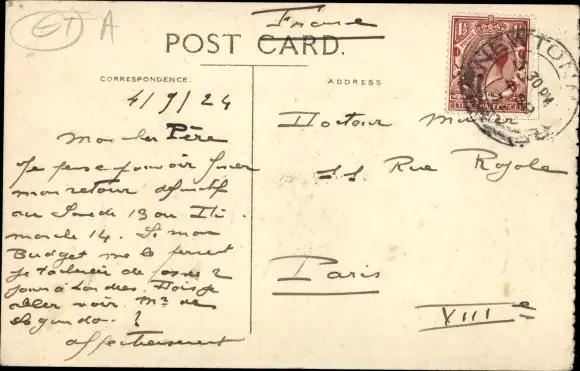 ET A
France
POST CARD.
CORRESPONDENCE.
ADDRESS
4/9/24
Mon cher Père
Je pense pouvoir fixer
mon retour définitif
au Samedi 13 ou Di
manche 14. Si mon
Budget me le permet
je tâcherai de 2
jours à Londres. Dois je
aller voir Mr de
?
affectueusement
Docteur
11 Rue Royale
Paris
VIIIe
1½ 1½
NEWTON